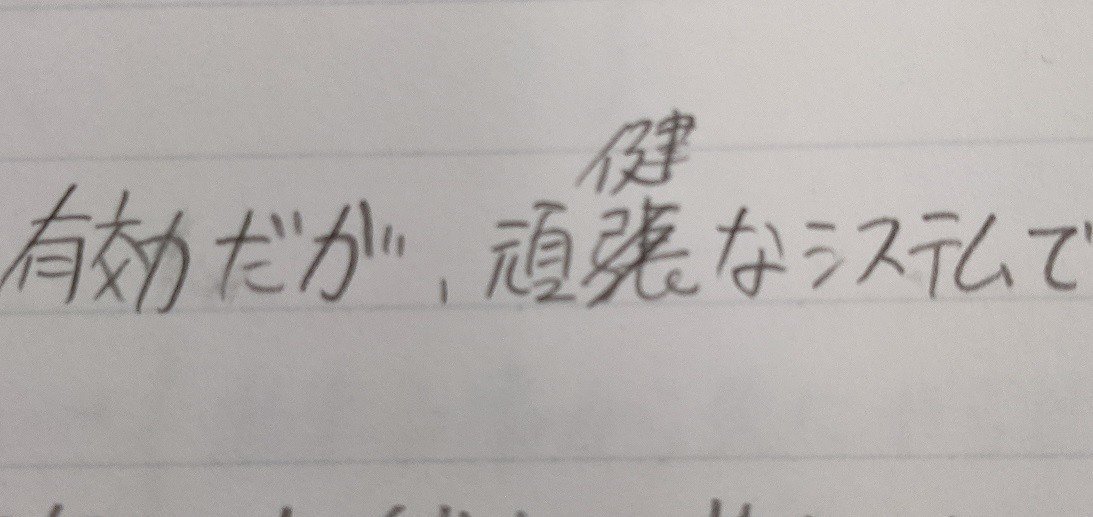 有効だが、頑健なシステムで